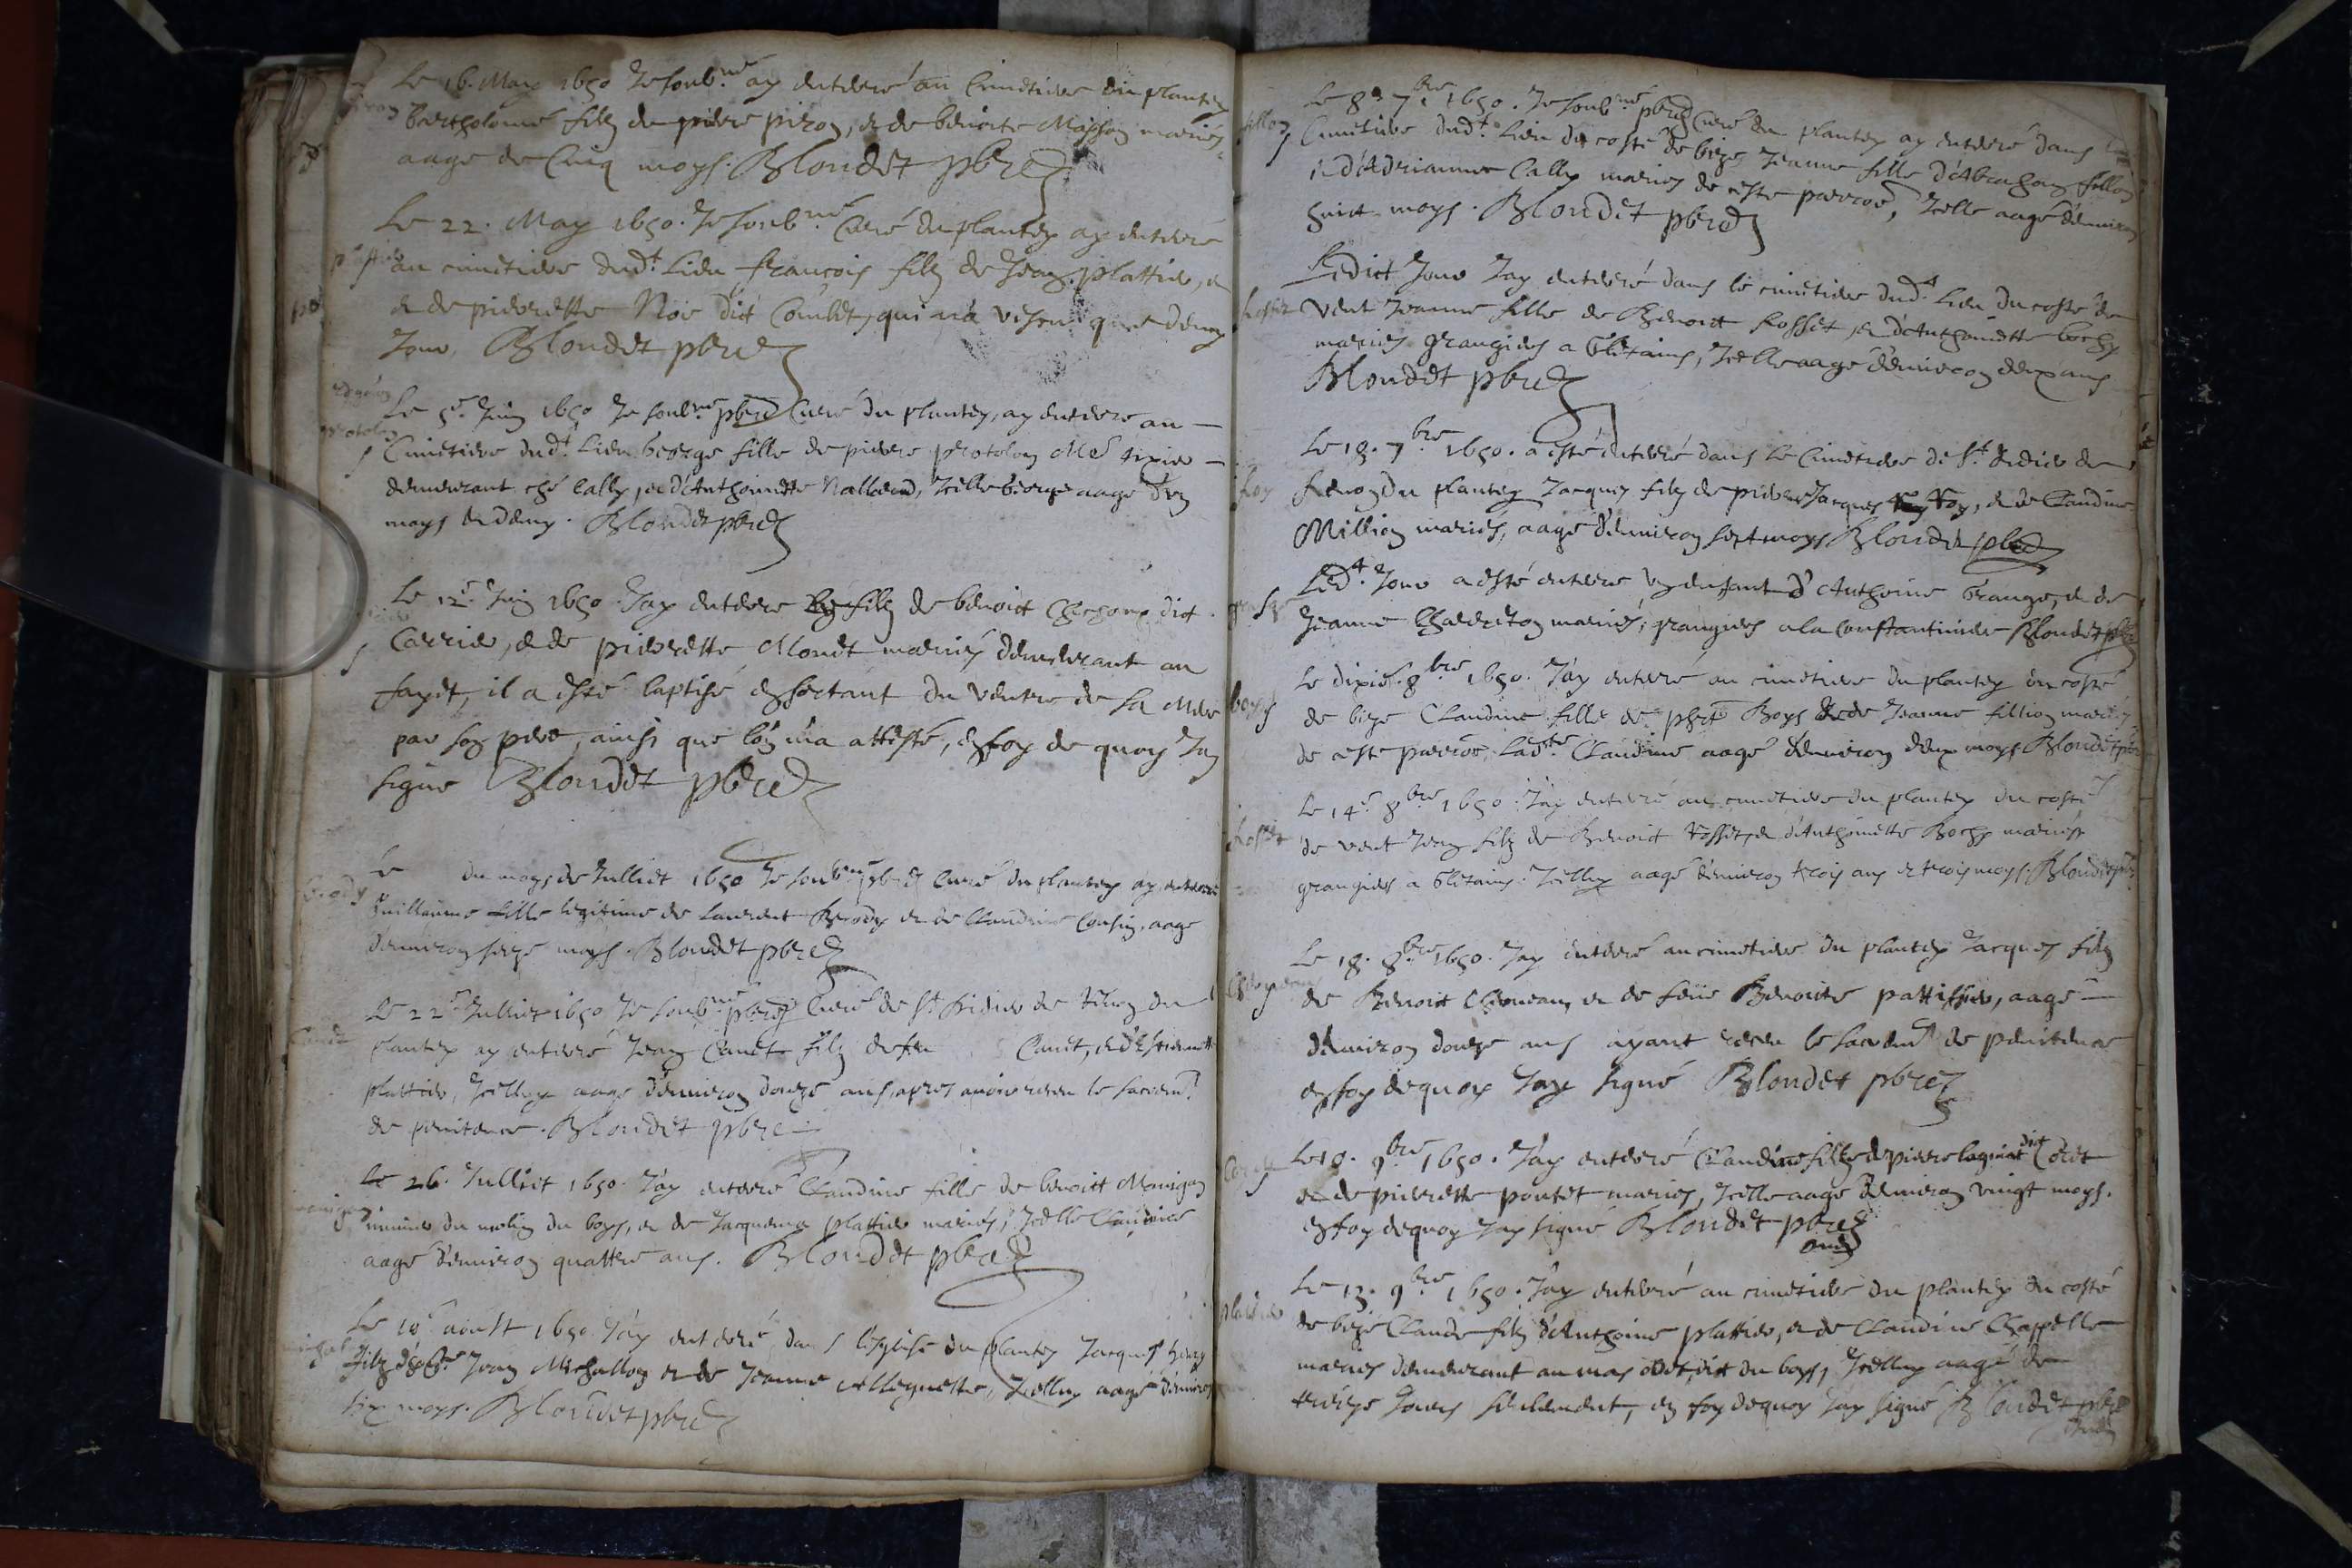 Le 16. May 1650 Je soubné ay enterré au Cimetiere du plantey
piron
Bartholomé filz de pierre piron, et de benoite Masson mariés,
aagé de Cinq moys. Blondet pbre
Le 22. May 1650. Je soubné Curé du plantey ay enterré
plattier
au cimetiere dudt Lieu françois filz de Jean plattier, et
et de pierrette Noé dict Coulet, qui n'a vescu que demy
Jour, Blondet pbre
Le 5e Juin 1650 Je soubné pbre Curé du plantey, ay enterré au
protolon
Cimetiere dudt Lieu george fille de pierre protolon Me tixier
demeurant ché Cally, et d'Anthoinette Nallard, Icelle george aagé d'un
moys et demy. Blondet pbre
Le 12e Juin 1650 J'ay enterré un filz de benoict dict
Carrier, et de pierrette Monet mariés demeurant au
fayet, il a esté baptisé en sortant du ventre de sa Mere
par son pere, ainsi que l'on m'a attesté, en foy de quoy J'ay
signé Blondet pbre
Le du moys de Julliet 1650 Je soubné pbre Curé du plantey ay enterré
brody
Guillaume fille legitime de Laurent brody et de Claudine Cousin, aagé
d'environ seize moys. Blondet pbre
Le 22e Julliet 1650 Je soubné pbre Curé de St Didier de Renon du
Canet
plantey ay enterré Jean Canet filz de feu Canet, et d'Estiennette
plattier, Icelluy aagé d'environ douze ans, apres avoir receu le sacremt
de penitence. Blondet pbre
Le 26. Julliet 1650. J'ay enterré Claudine fille de benoict Monigan
monigan
munier du molin du boys, et de Jacquema plattier mariés, Icelle Claudine
aagé d'environ quattre ans. Blondet pbre
Le 10e aoust 1650 J'ay enterré dans l'esglise du plantey Jacques
filz d'honble Jean Michallon et de Jeanne Icelluy aagé d'environ
six moys. Blondet pbre
Le 8e 7bre 1650. Je soubné pbre Curé du plantey ay enterré dans le
fillon
Cimetiere dudt Lieu du costé de bize Jeanne fille d'Abraham fillon
et d'Adrianne Cally mariés de ceste parroë, Icelle aagé d'environ
huict moys. Blondet pbre
Ledict Jour J'ay enterré dans le cimetiere dudt Lieu du costé de
Rosset
vent Jeanne fille de Benoict Rosset, et d'Anthoinette bochy
mariés grangiers a Gletains, Icelle aagé d'environ deux ans
Blondet pbre
Le 18. 7bre 1650. a esté enterré dans le Cimetiere de St Didier de
Roy
Renon du plantey Jacques filz de pierre Jacques Roy, et de Claudine
Million mariés, aagé d'environ sept moys Blondet pbre
Ledt Jour a esté enterré un enfant d'Anthoine Grange, et de
grange
Jeanne Charreton mariés, grangiers a la Constantiniere Blondet pbre
Le dixie. 8bre 1650. J'ay enterré au cimetiere du plantey du costé
boys
de bize Claudine fille de phert Boys et de Jeanne fillion mariés
de ceste parroë, Ladte Claudine aagé d'environ deux moys Blondet pbre
Le 14e 8bre 1650. J'ay enterré au cimetiere du plantey du costé
Rosset
de vent Jean filz de Benoict Rosset, et d'Anthoinette Bochy mariés
grangiers a Gletains. Icelluy aagé d'environ trois ans et trois moys. Blondet pbre
Le 18. 8bre 1650. J'ay enterré au cimetiere du plantey Jacques filz
de Benoict et de feüe Benoite pattissier, aagé
d'environ douze ans ayant receu le sacremt de penitence
en foy de quoy J'ay signé Blondet pbre
Le 10. 9bre 1650. J'ay enterré Claudine fille de pierre dict Coret
et de pierrette poutet mariés, Icelle aagé d'environ vingt moys.
en foy de quoy J'ay signé Blondet pbre
Le 13. 9bre 1650. J'ay enterré au cimetiere du plantey du costé
plattier
de bize Claude filz d'Anthoine plattier, et de Claudine Chappelle
mariés demeurant au mas dict du boys, Icelluy aagé de
treize Jours seulement, en foy de quoy J'ay signé Blondet pbre